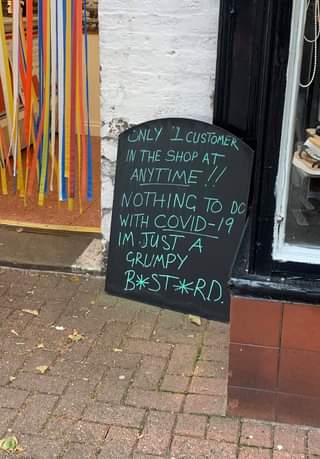 ONLY 1 CUSTOMER
IN THE SHOP AT
ANYTIME!!
NOTHING TO DO
WITH COVID-19
IM JUST A
GRUMPY
B*ST*RD.